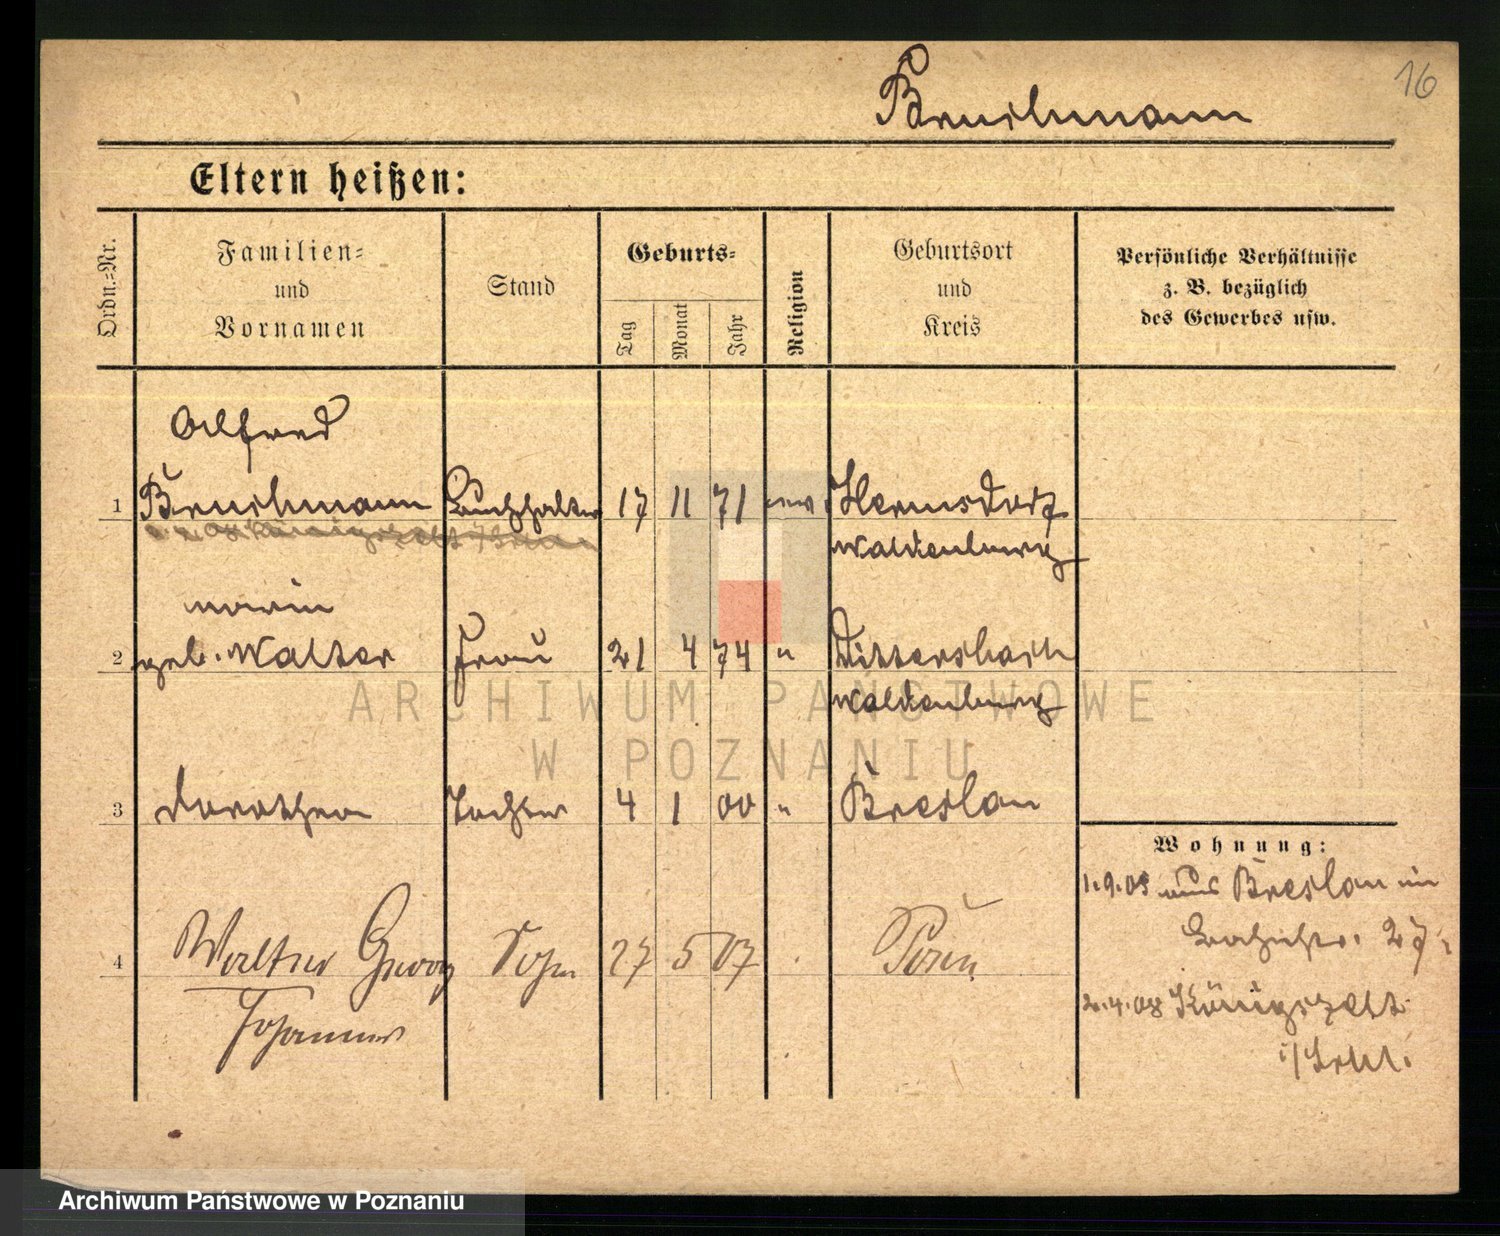 16
Bruchmann
Eltern heißen:
Ordn.-Nr.
Familien-
und
Vornamen
Stand
Geburts-
Tag
Monat
Jahr
Religion
Geburtsort
und
Kreis
Persönliche Verhältnisse
z. B. bezüglich
des Gewerbes usw.
Alfred
1 Bruchmann Buchhalter 17 11 71 Hermsdorf
Waldenburg
2 geb. Walter Frau 21 4 74 " Dittersbach
Waldenburg
3 Dorothea Tochter 4 1 00 " Breslau
Wohnung:
1.9.05 aus Breslau in
27
4 Walter Georg Sohn 27 5 07 Posen
Johannes
2.4.08 Königszelt
i/Schl.
ARCHIWUM PAŃSTWOWE
W POZNANIU
Archiwum Państwowe w Poznaniu